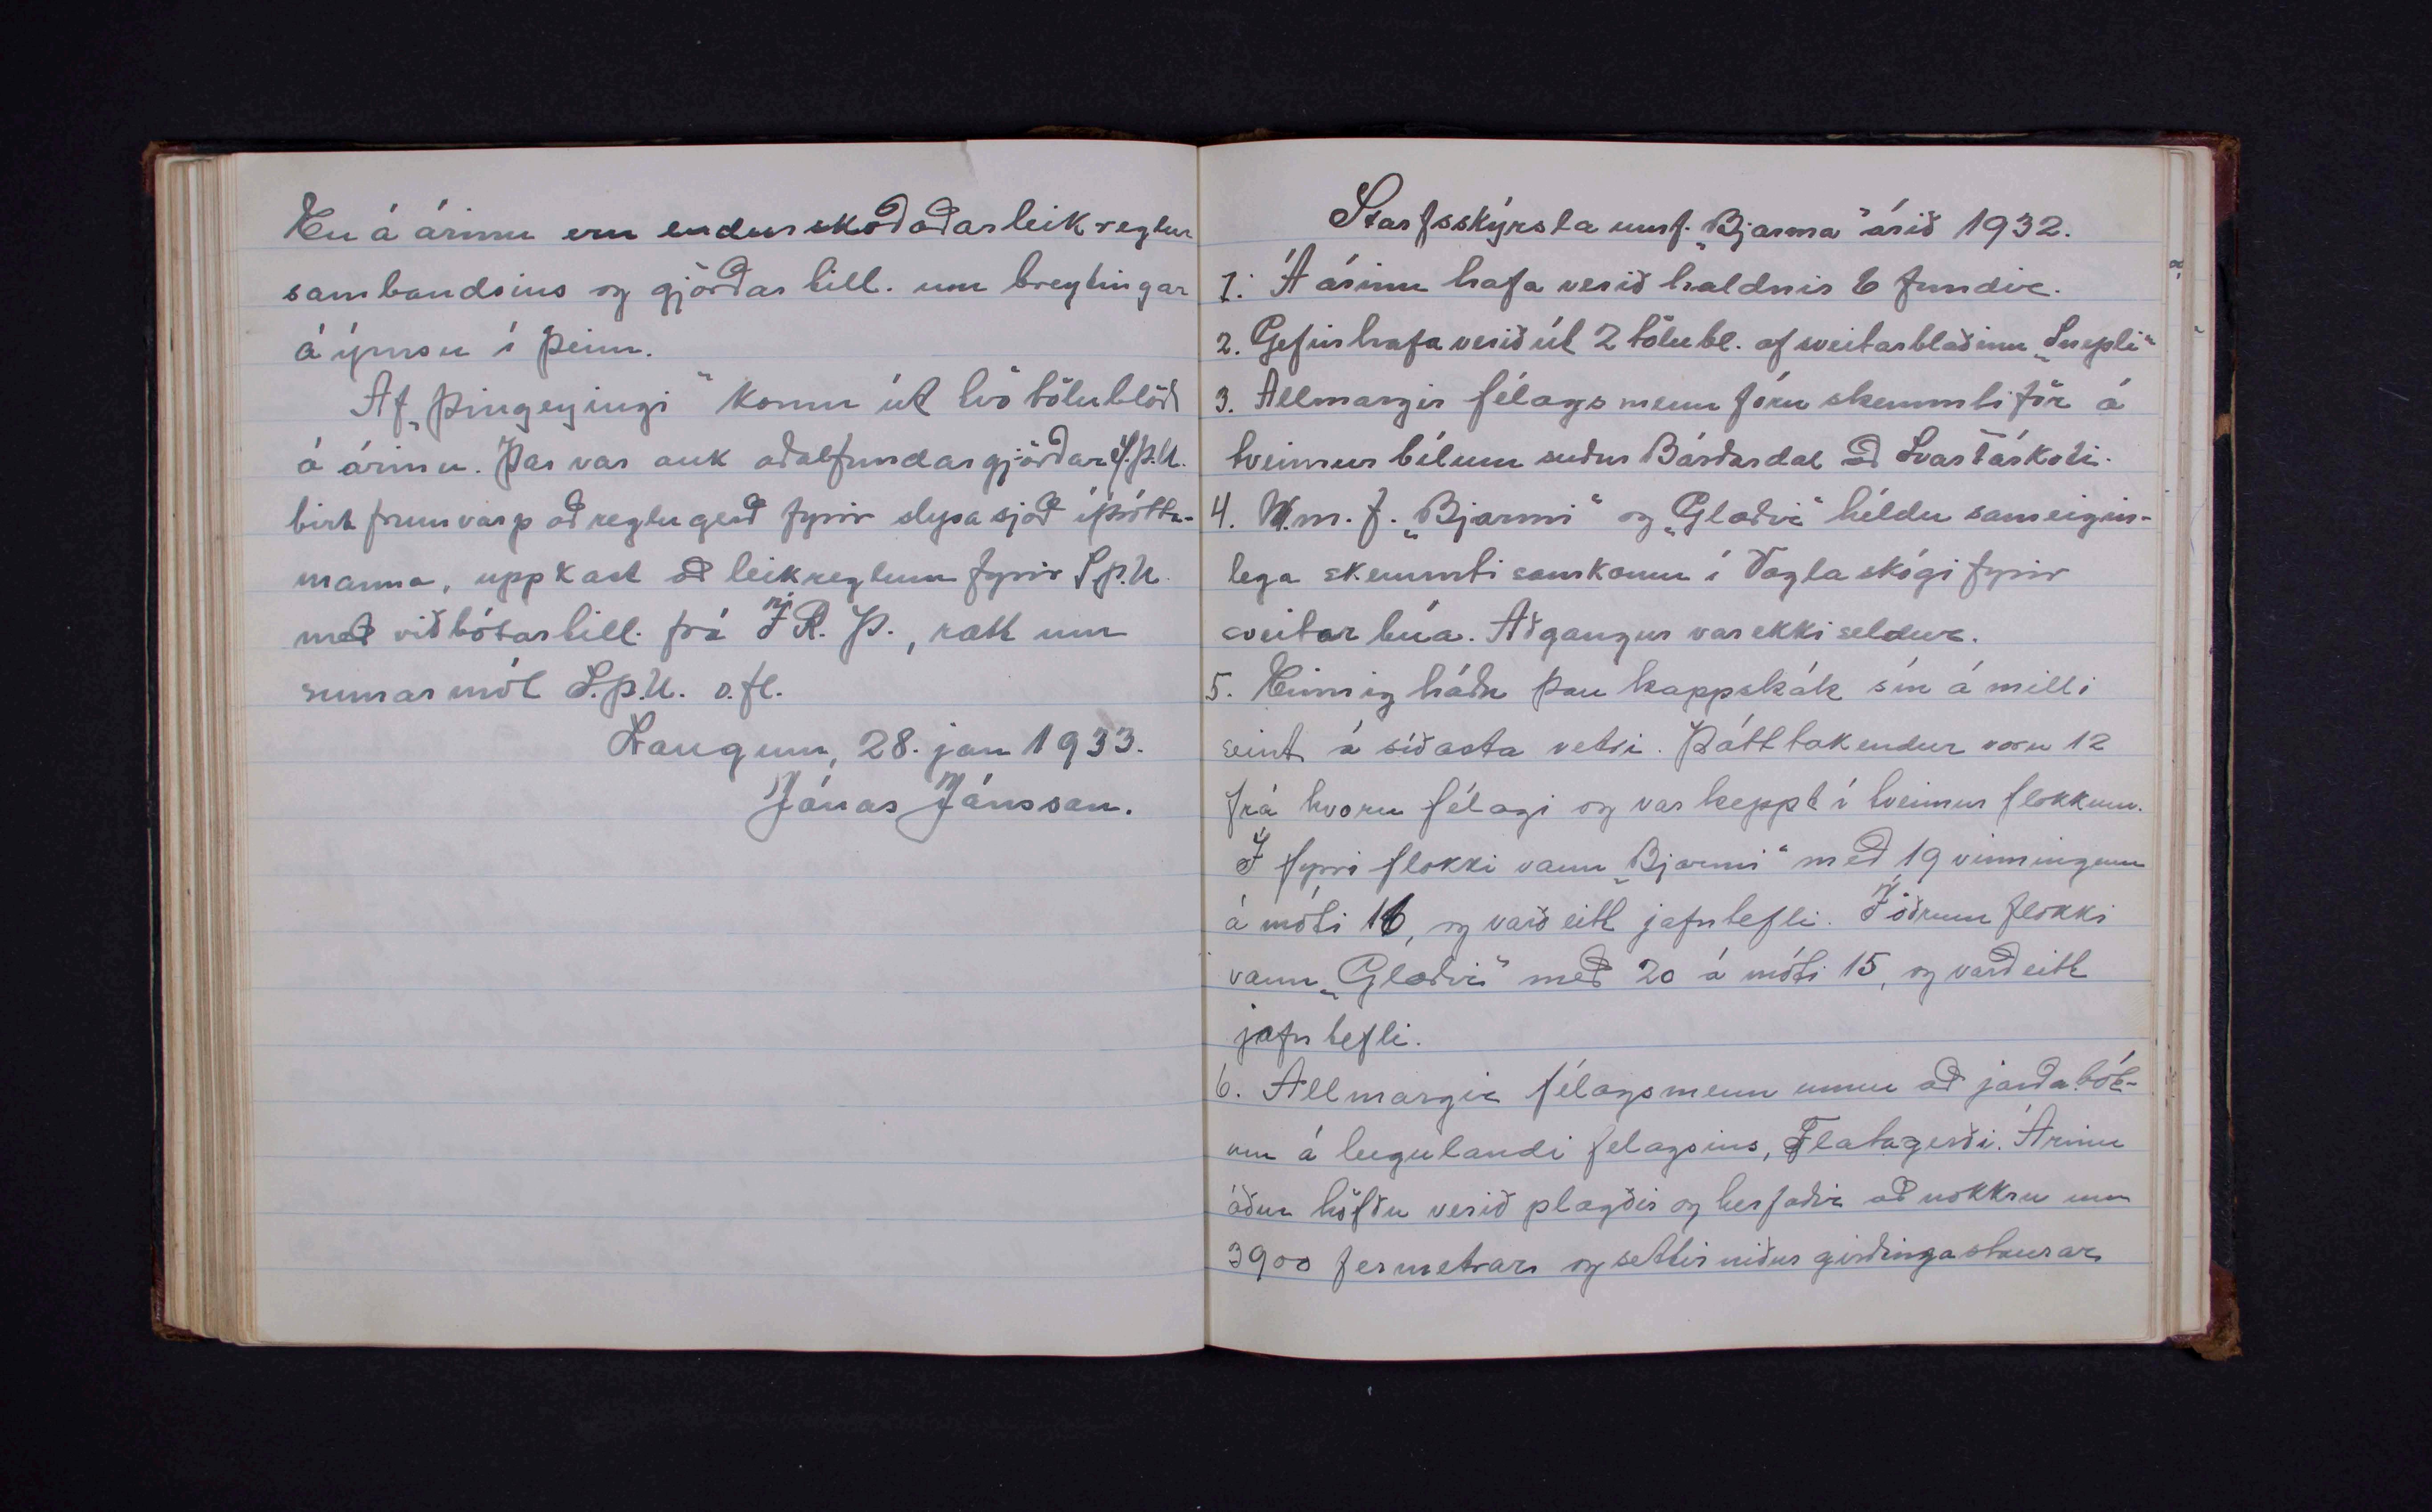 En á árinu eru endurskoðaðar leikreglur
sambandsins og gjörðar till. um breytingar
á ýmsu í þeim.
Af „Þingeyingi" komu út tvö tölublöð
á árinu. Þar var auk aðalfundargjörðar S.Þ.U.
birt frumvarp að reglugerð fyrir slysasjóð íþrótta-
manna, uppkast að leikreglum fyrir S.Þ.U.
með viðbótartill. frá Í.R.Þ., rætt um
sumarmót S.Þ.U. o.fl.
Laugum, 28. jan 1933.
Jónas Jónsson.
Starfsskýrsla umf. „Bjarma" árið 1932.
1. Á árinu hafa verið haldnir 6 fundir.
2. Gefin hafa verið út 2 tölubl. af sveitarblaðinu „Snepli"
3. Allmargir félagsmenn fóru skemmtiför á
tveimur bílum suður Bárðardal að Svartárkoti.
4. U.m.f. „Bjarmi" og „Glæðir" héldu sameigin-
lega skemmtisamkomu í Vaglaskógi fyrir
sveitarbúa. Aðgangur var ekki seldur.
5. Einnig háðu þau kappskák sín á milli
seint á síðasta vetri. Þátttakendur voru 12
frá hvoru félagi og var keppt í tveimur flokkum.
Í fyrri flokki vann „Bjarmi" með 19 vinningum
á móti 16, og varð eitt jafntefli. Í öðrum flokki
vann „Glæðir" með 20 á móti 15, og varð eitt
jafntefli.
6. Allmargir félagsmenn unnu að jarðabót-
um á leigulandi felagsins, Flatagerði. Árinu
áður höfðu verið plægðir og herfaðir að nokkru um
3900 fermetrar og settir niður girðingastaurar